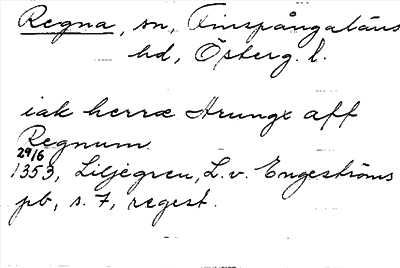 Regna, sn, Finspångaläns
hd, Österg. l.
iak herræ Arunge aff
Regnum
29/6
1353, Liljegren, L. v. Engeströms
pb, s. 7, regest.